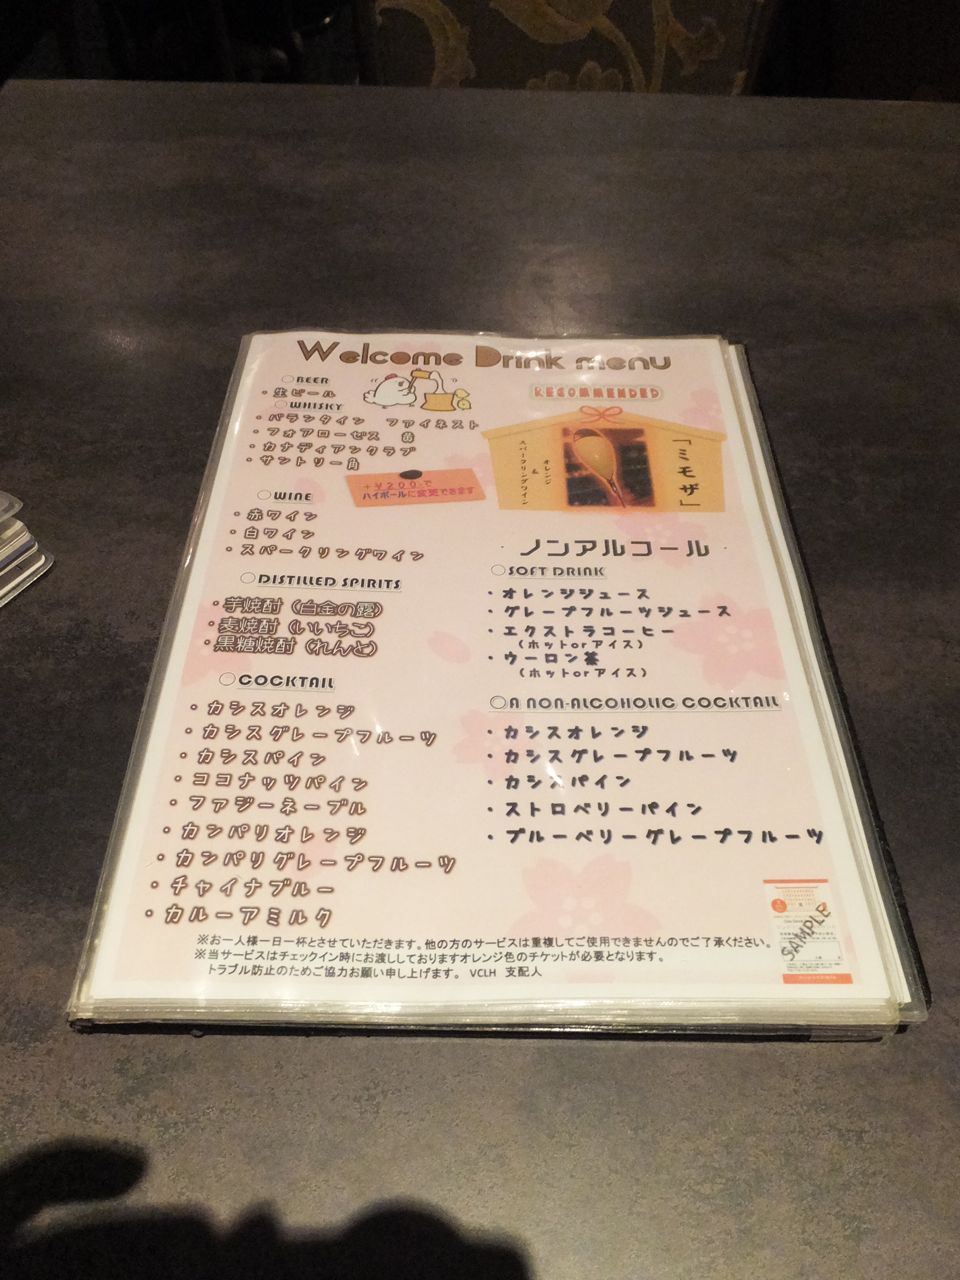 Welcome Drink menu
○BEER
・生ビール
○WHISKY
・バランタイン ファイネスト
・フォアローゼス 黄
・カナディアンクラブ
・サントリー角
+¥200で
ハイボールに変更できます
○WINE
・赤ワイン
・白ワイン
・スパークリングワイン
○DISTILLED SPIRITS
・芋焼酎（白金の露）
・麦焼酎（いいちこ）
・黒糖焼酎（れんと）
○COCKTAIL
・カシスオレンジ
・カシスグレープフルーツ
・カシスパイン
・ココナッツパイン
・ファジーネーブル
・カンパリオレンジ
・カンパリグレープフルーツ
・チャイナブルー
・カルーアミルク
RECOMMENDED
「ミモザ」
オレンジ
&
スパークリングワイン
ノンアルコール
○SOFT DRINK
・オレンジジュース
・グレープフルーツジュース
・エクストラコーヒー
（ホットorアイス）
・ウーロン茶
（ホットorアイス）
○A NON-ALCOHOLIC COCKTAIL
・カシスオレンジ
・カシスグレープフルーツ
・カシスパイン
・ストロベリーパイン
・ブルーベリーグレープフルーツ
※お一人様一日一杯とさせていただきます。他の方のサービスは重複してご使用できませんのでご了承ください。
※当サービスはチェックイン時にお渡ししておりますオレンジ色のチケットが必要となります。
トラブル防止のためご協力お願い申し上げます。 VCLH 支配人
SAMPLE